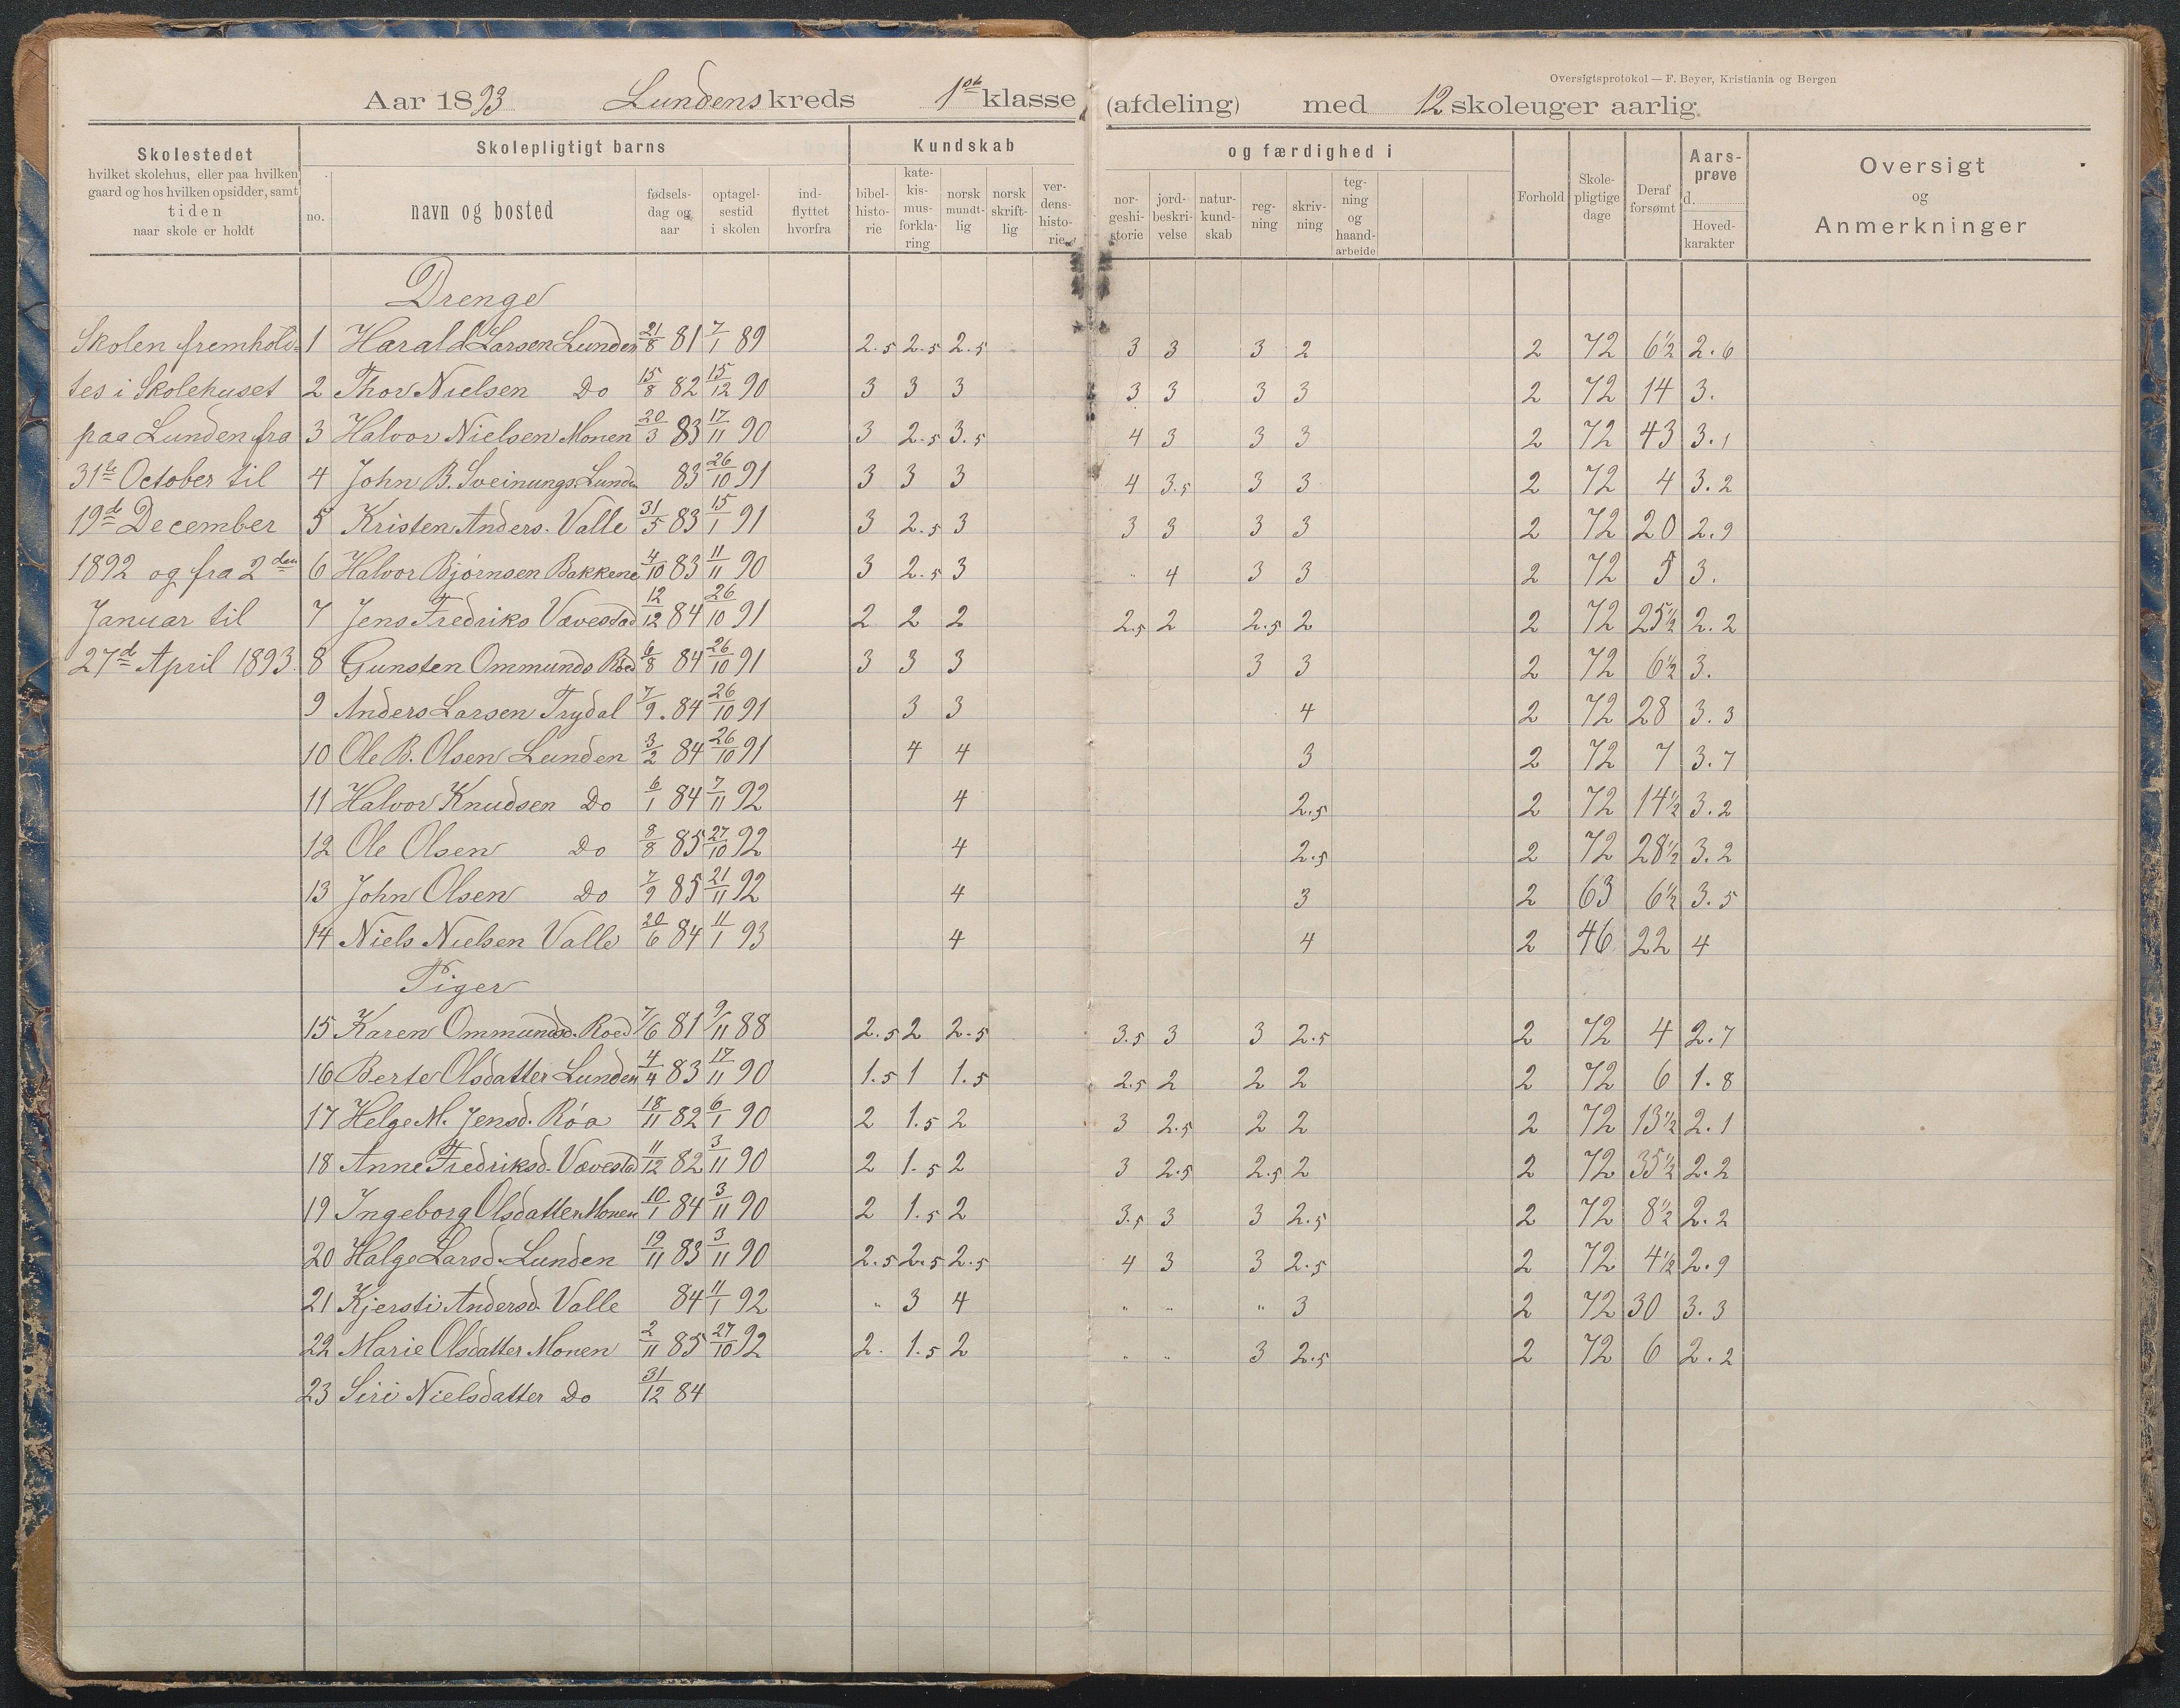 Oversigtsprotokol — F. Beyer, Kristiania og Bergen
Aar 1893 Lundens kreds 1ste klasse (afdeling) med 12 skoleuger aarlig.
Skolestedet
hvilket skolehus, eller paa hvilken
gaard og hos hvilken opsidder, samt
tiden
naar skole er holdt
Skolepligtigt barns
no.
navn og bosted
fødsels-
dag og
aar
optagel-
sestid
i skolen
ind-
flyttet
hvorfra
Kundskab
bibel-
histo-
rie
kate-
kis-
mus-
forkla-
ring
norsk
mundt-
lig
norsk
skrift-
lig
ver-
dens-
histo-
rie
og færdighed i
nor-
geshi-
storie
jord-
beskri-
velse
natur-
kund-
skab
reg-
ning
skriv-
ning
teg-
ning
og
haand-
arbeide
Forhold
Skole-
pligtige
dage
Deraf
forsømt
Aars-
prøve
d.
Hoved-
karakter
Oversigt
og
Anmerkninger
Drenge
Skolen fremhold- 1 Harald Larsen Lunden 21/8 81 7/1 89 2.5 2.5 2.5 3 3 3 2 2 72 6½ 2.6
tes i Skolehuset 2 Thor Nielsen Do 15/8 82 15/12 90 3 3 3 3 3 3 3 2 72 14 3.
paa Lunden fra 3 Halvor Nielsen Monen 20/3 83 17/11 90 3 2.5 3.5 4 3 3 3 2 72 43 3.1
31te October til 4 John B. Sveinungs. Lunden 83 26/10 91 3 3 3 4 3.5 3 3 2 72 4 3.2
19de December 5 Kristen Anders. Valle 31/5 83 15/1 91 3 2.5 3 3 3 3 3 2 72 20 2.9
1892 og fra 2den 6 Halvor Bjørnsen Bakkene 4/10 83 11/11 90 3 2.5 3 " 4 3 3 2 72 5 3.
Januar til 7 Jens Fredriks Vævestad 12/12 84 26/10 91 2 2 2 2.5 2 2.5 2 2 72 25½ 2.2
27de April 1893. 8 Gunsten Ommunds Röed 6/8 84 26/10 91 3 3 3 3 3 2 72 6½ 3.
9 Anders Larsen Trydal 7/9. 84 26/10 91 3 3 4 2 72 28 3.3
10 Ole B. Olsen Lunden 3/2 84 26/10 91 4 4 3 2 72 7 3.7
11 Halvor Knudsen Do 6/1 84 7/11 92 4 2.5 2 72 14½ 3.2
12 Ole Olsen Do 8/8 85 27/10 92 4 2.5 2 72 28½ 3.2
13 John Olsen Do 7/9 85 21/11 92 4 3 2 63 6½ 3.5
14 Niels Nielsen Valle 20/6 84 11/1 93 4 4 2 46 22 4
Piger
15 Karen Ommundsd. Roed 7/6 81 9/11 88 2.5 2 2.5 3.5 3 3 2.5 2 72 4 2.7
16 Berte Olsdatter Lunden 4/4 83 17/11 90 1.5 1 1.5 2.5 2 2 2 2 72 6 1.8
17 Helge M. Jensd. Röa 18/11 82 6/1 90 2 1.5 2 3 2.5 2 2 2 72 13½ 2.1
18 Anne Fredriksd. Vævestad 11/12 82 3/11 90 2 1.5 2 3 2.5 2.5 2 2 72 35½ 2.2
19 Ingeborg Olsdatter Monen 10/1 84 3/11 90 2 1.5 2 3.5 3 3 2.5 2 72 8½ 2.2
20 Halge Larsd. Lunden 19/11 83 3/11 90 2.5 2.5 2.5 4 3 3 2.5 2 72 4½ 2.9
21 Kjersti Andersd. Valle 84 11/1 92 " 3 4 " " " 3 2 72 30 3.3
22 Marie Olsdatter Monen 2/11 85 27/10 92 2. 1.5 2 " " 3 2.5 2 72 6 2.2
23 Siri Nielsdatter Do 31/12 84